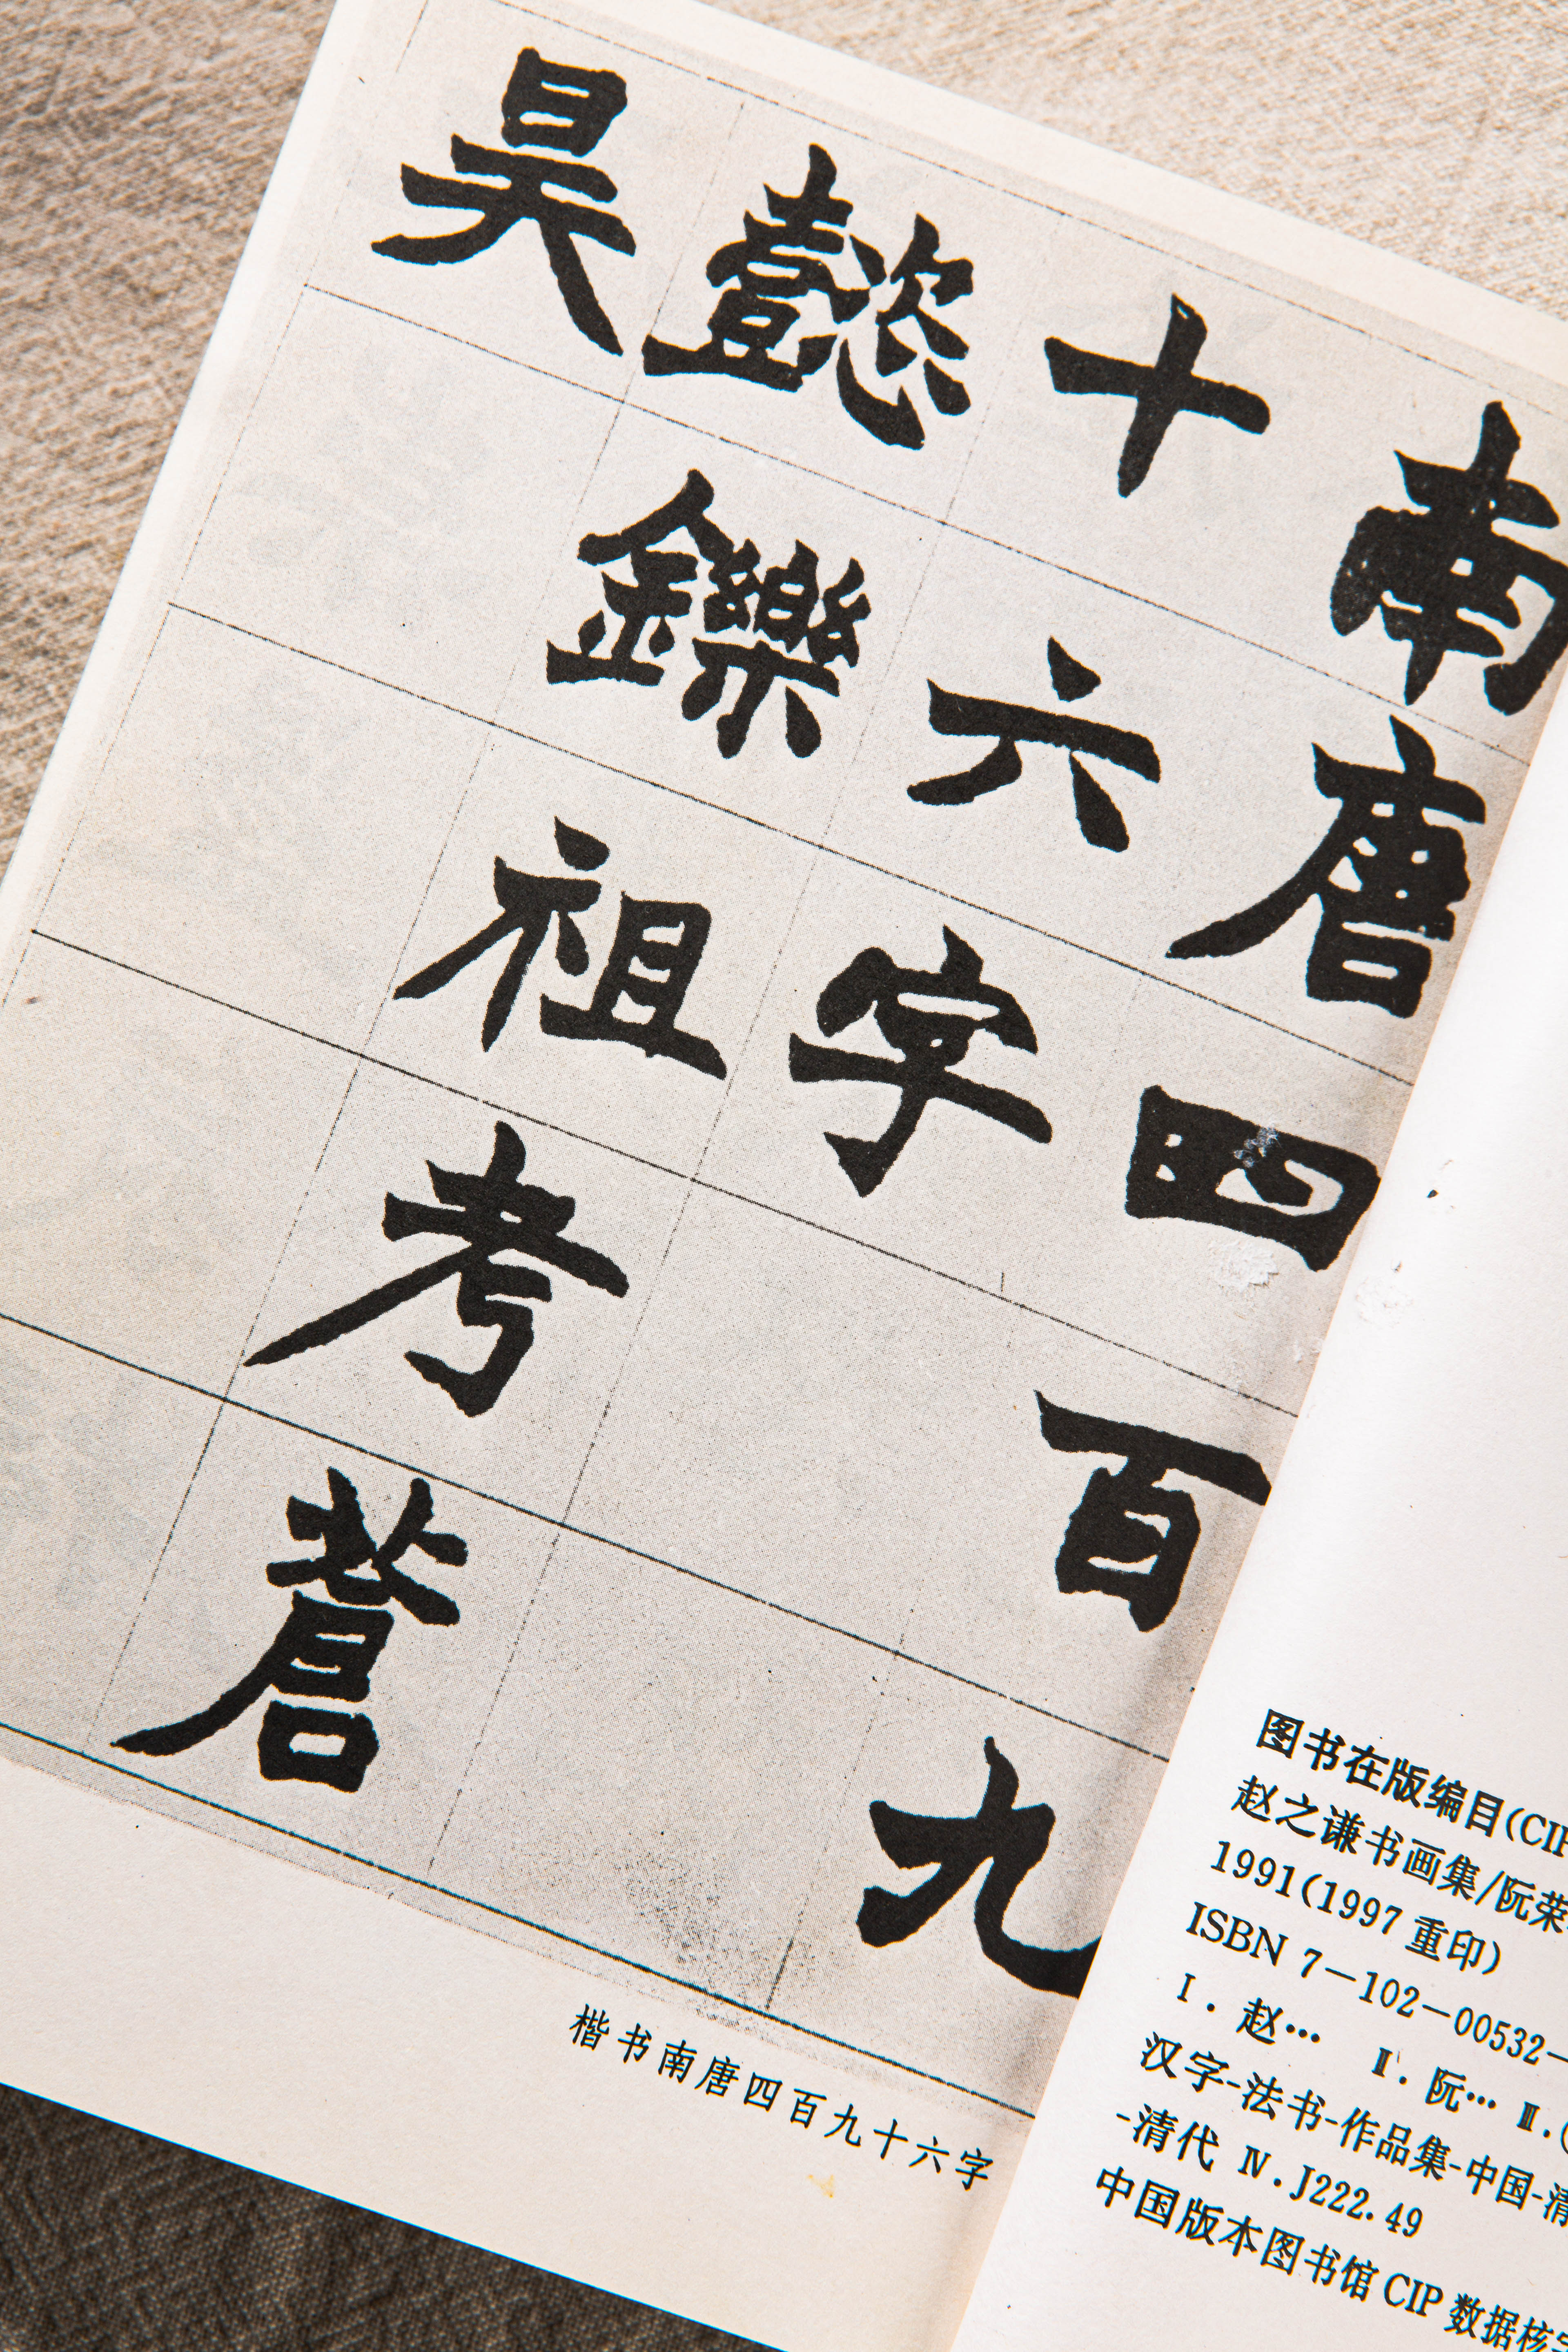 南唐四百九
十六字
懿鑠祖考蒼
昊
楷书南唐四百九十六字
图书在版编目(CIP
赵之谦书画集/阮荣
1991(1997重印)
ISBN 7—102—00532—
Ⅰ.赵… Ⅱ.阮… Ⅲ.
汉字-法书-作品集-中国-清
-清代 Ⅳ.J222.49
中国版本图书馆CIP数据核